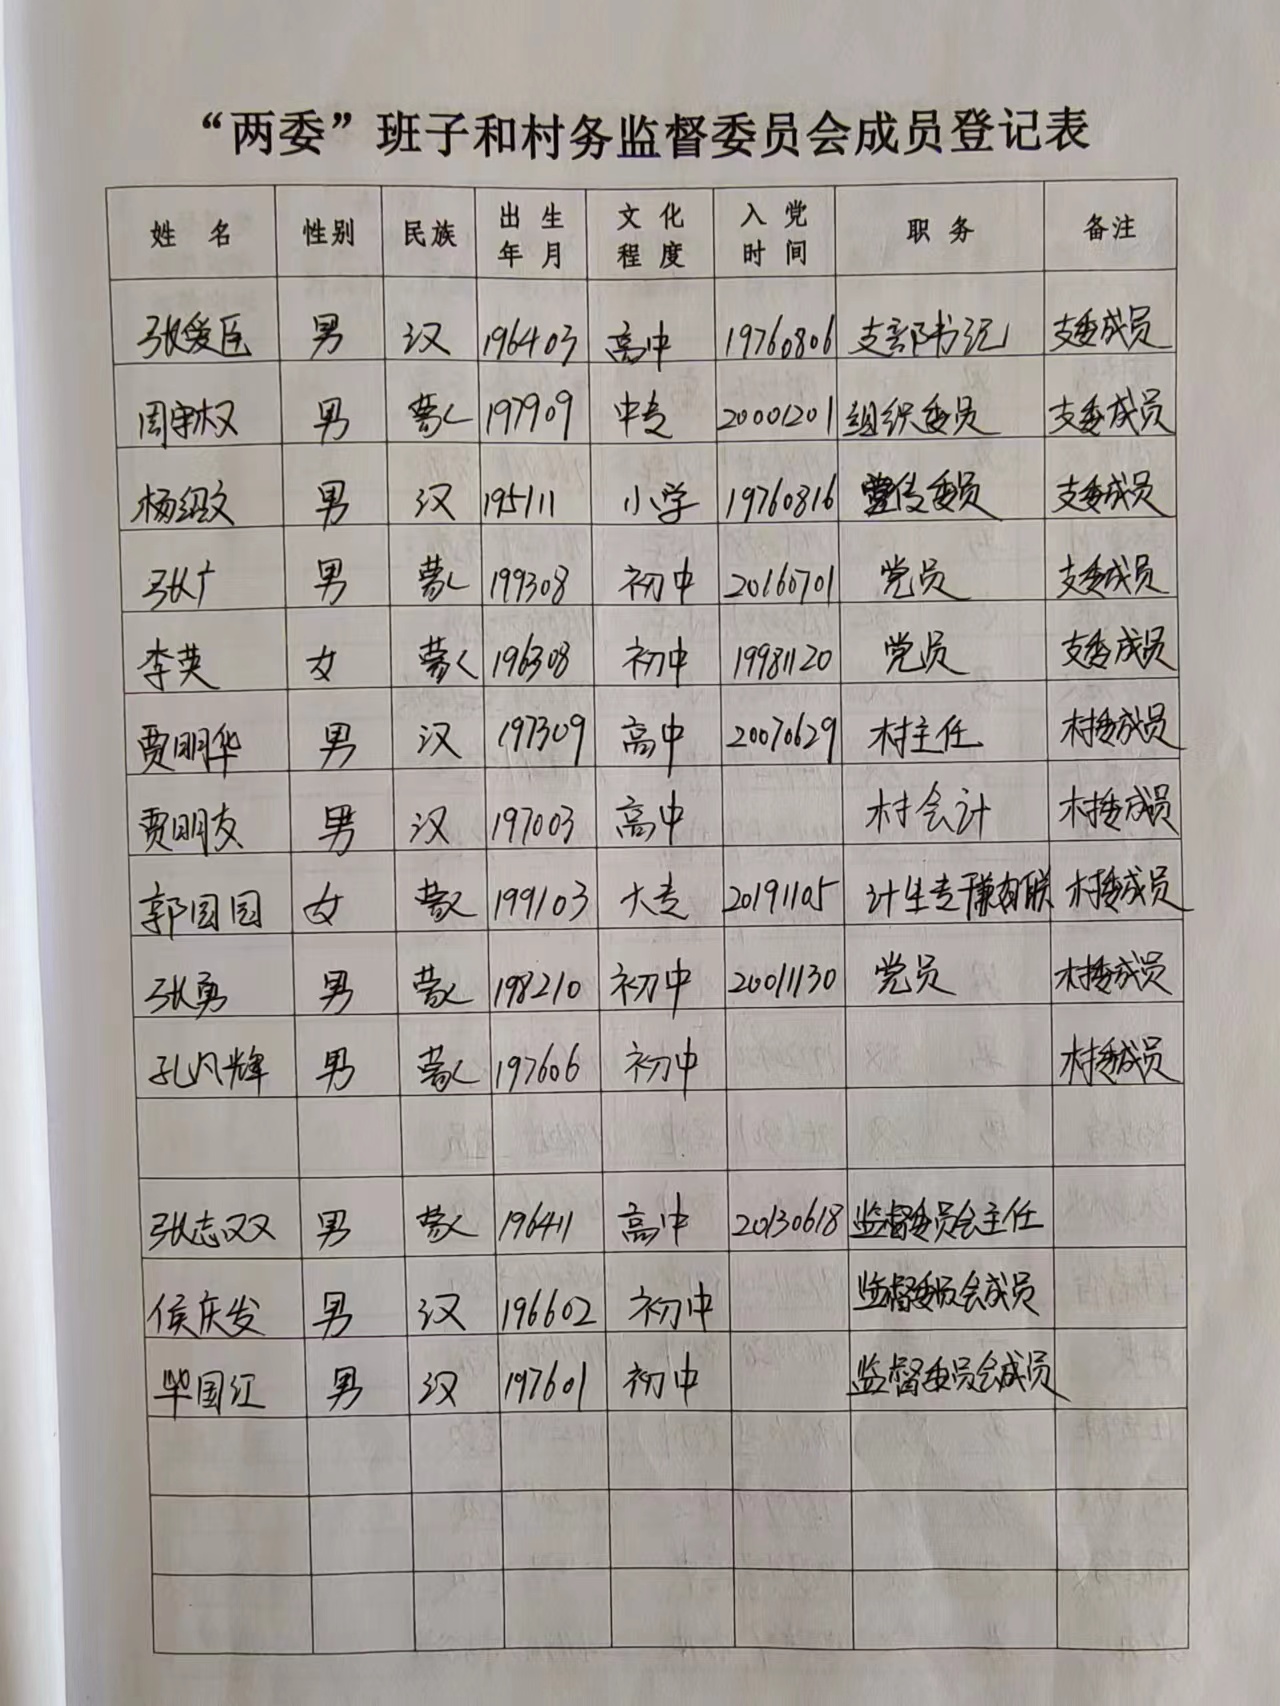 “两委”班子和村务监督委员会成员登记表
姓名 性别 民族 出生年月 文化程度 入党时间 职务 备注
张爱臣 男 汉 196403 高中 19760806 支部书记 支委成员
周宇权 男 蒙 197909 中专 20001201 组织委员 支委成员
杨绍文 男 汉 195111 小学 19760816 宣传委员 支委成员
张广 男 蒙 199308 初中 20160701 党员 支委成员
李英 女 蒙 196308 初中 19981120 党员 支委成员
贾明华 男 汉 197309 高中 20070629 村主任 村委成员
贾明友 男 汉 197003 高中 村会计 村委成员
郭园园 女 蒙 199103 大专 20191105 计生专干兼妇联 村委成员
张勇 男 蒙 198210 初中 20011130 党员 村委成员
孔凡辉 男 蒙 197606 初中 村委成员
张志双 男 蒙 196411 高中 20130618 监督委员会主任
侯庆发 男 汉 196602 初中 监督委员会成员
毕国江 男 汉 197601 初中 监督委员会成员